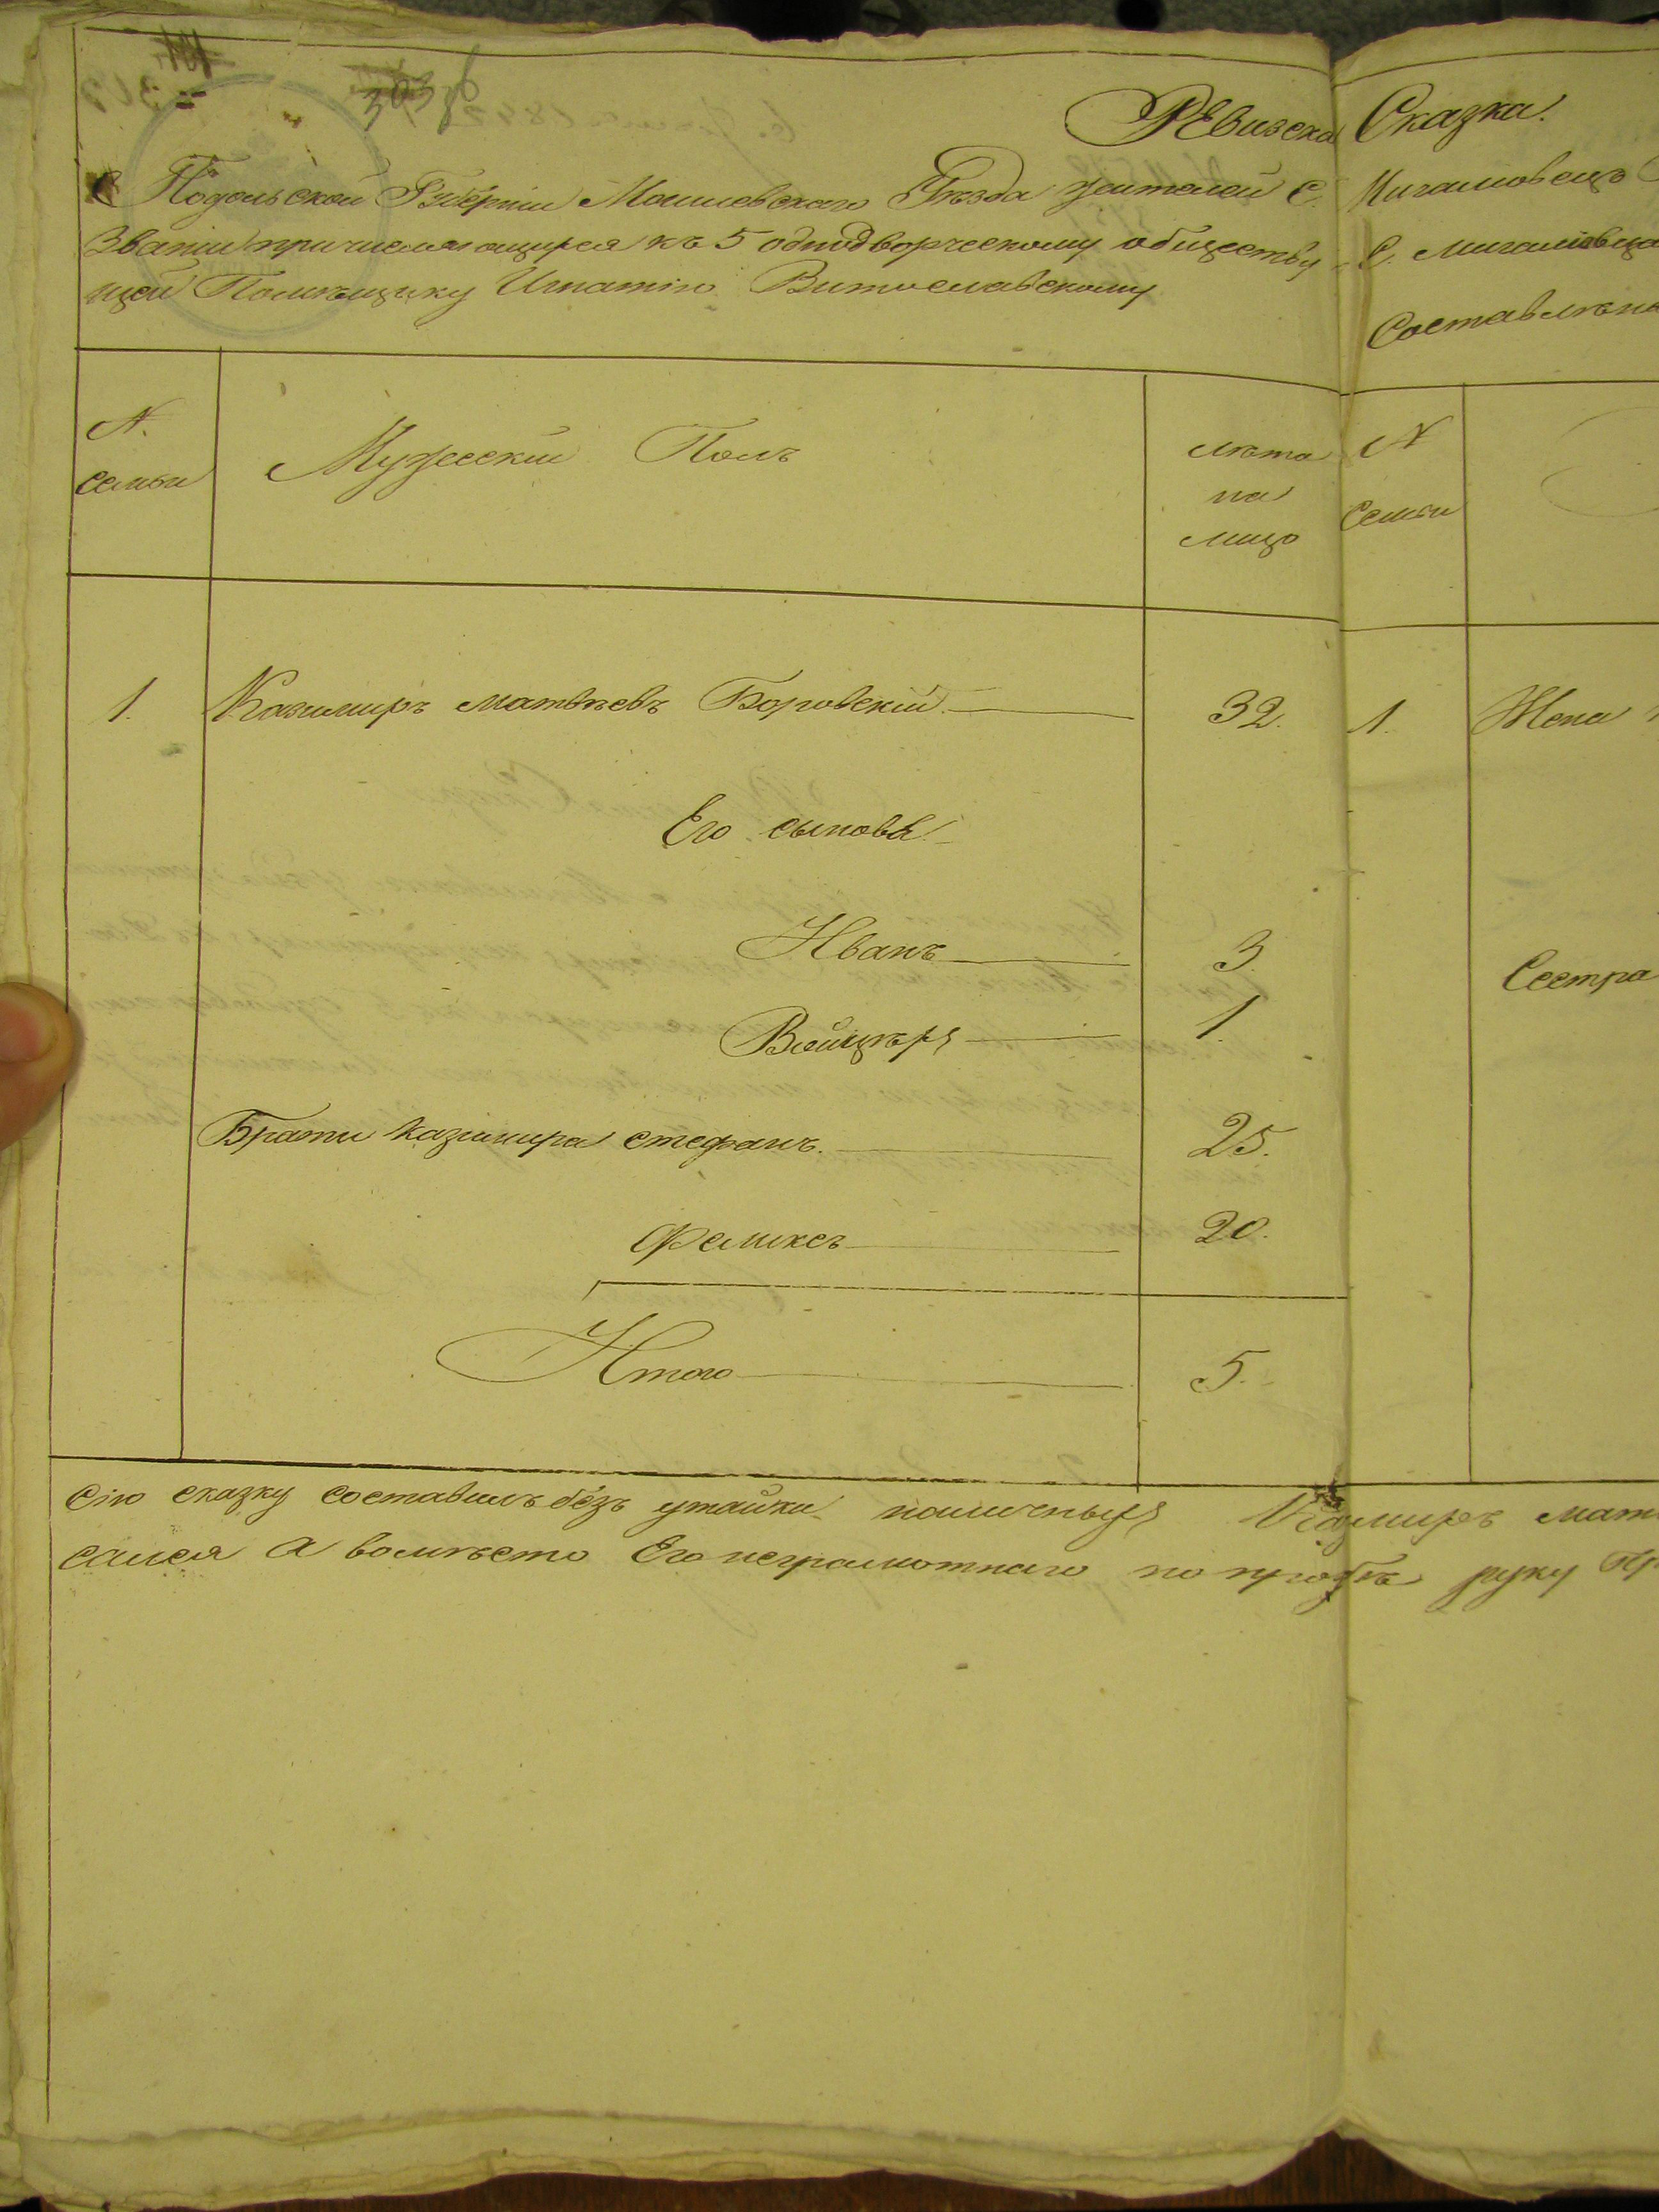 РЕвизска Сказка.
Подольской Губерніи Могилевскаго Уѣзда жителей С. Мигаловецъ
Званіи причисляющихся къ 5 однодворческому обществу С. Мигаловца
щей Помѣщику Игнатію Витославскому Составлѣна
N. семьи
Мужескій Полъ
лѣта на лицо
N семьи
1. Казимиръ матвѣевъ Боровскій. 32. 1. Жена
Его сыновья
Иванъ 3.
Войцѣхъ 1.
Сестра
Брати казимира стефанъ. 25.
Феликсъ 20.
Итого 5.
Сію сказку составилъ безъ утайки наличныхъ мат
сался а вомѣсто Его неграмотнаго по прозбѣ руку